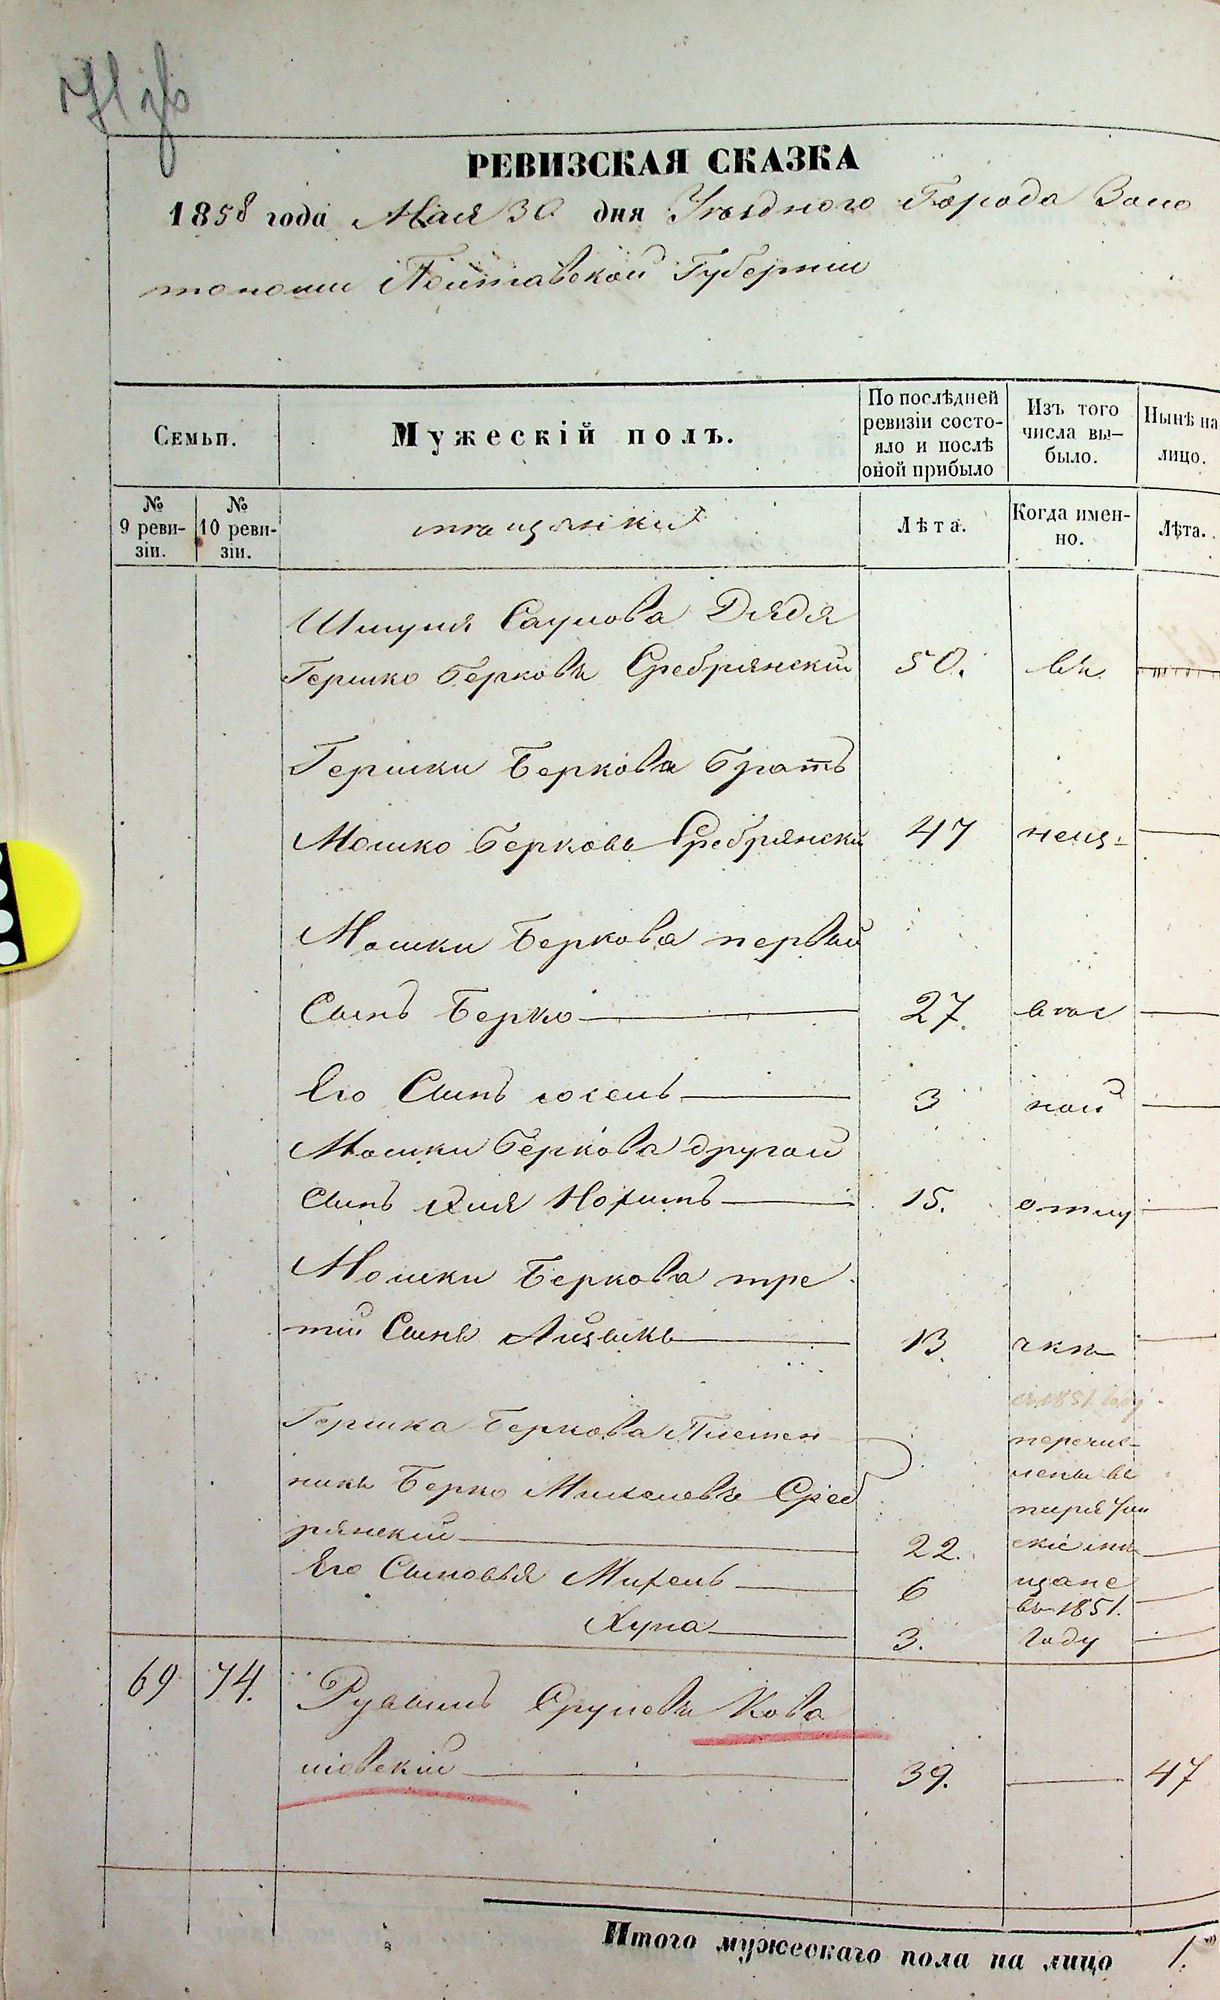 РЕВИЗСКАЯ СКАЗКА
1858 года Мая 30 дня Уѣзднаго Города Золо
тоноши Полтавской Губерніи
Семьи.
Мужескій полъ.
По послѣдней ревизіи состояло и послѣ оной прибыло
Изъ того числа вы-было.
Нынѣ на лицо.
№ 9 реви-зіи.
№ 10 реви-зіи.
Лѣта.
Когда имен-но.
Лѣта.
Шмуля Саулова Дядя
Гершко Берковъ Сребрянскій 50. въ
Гершки Беркова братъ
Мошко Берковъ Сребрянскій 47
Мошки Беркова первый
Сынъ Берко 27.
Его Сынъ 3 ной
Мошки Беркова другой
Сынъ Нохимъ 15. отлу
Мошки Беркова тре
тій Сынъ Айзыкъ 13. чкѣ
въ 1851 году
Гершка Беркова Племен
перечис-
лены въ
никъ Берко Михелевъ Среб
рянскій 22.
Его Сыновья Михель 6
щане
въ 1851.
Хуна 3. Году
69 74. Рувинъ Сруловъ Кова
лівскій 39. 47
Итого мужескаго пола на лицо 1.